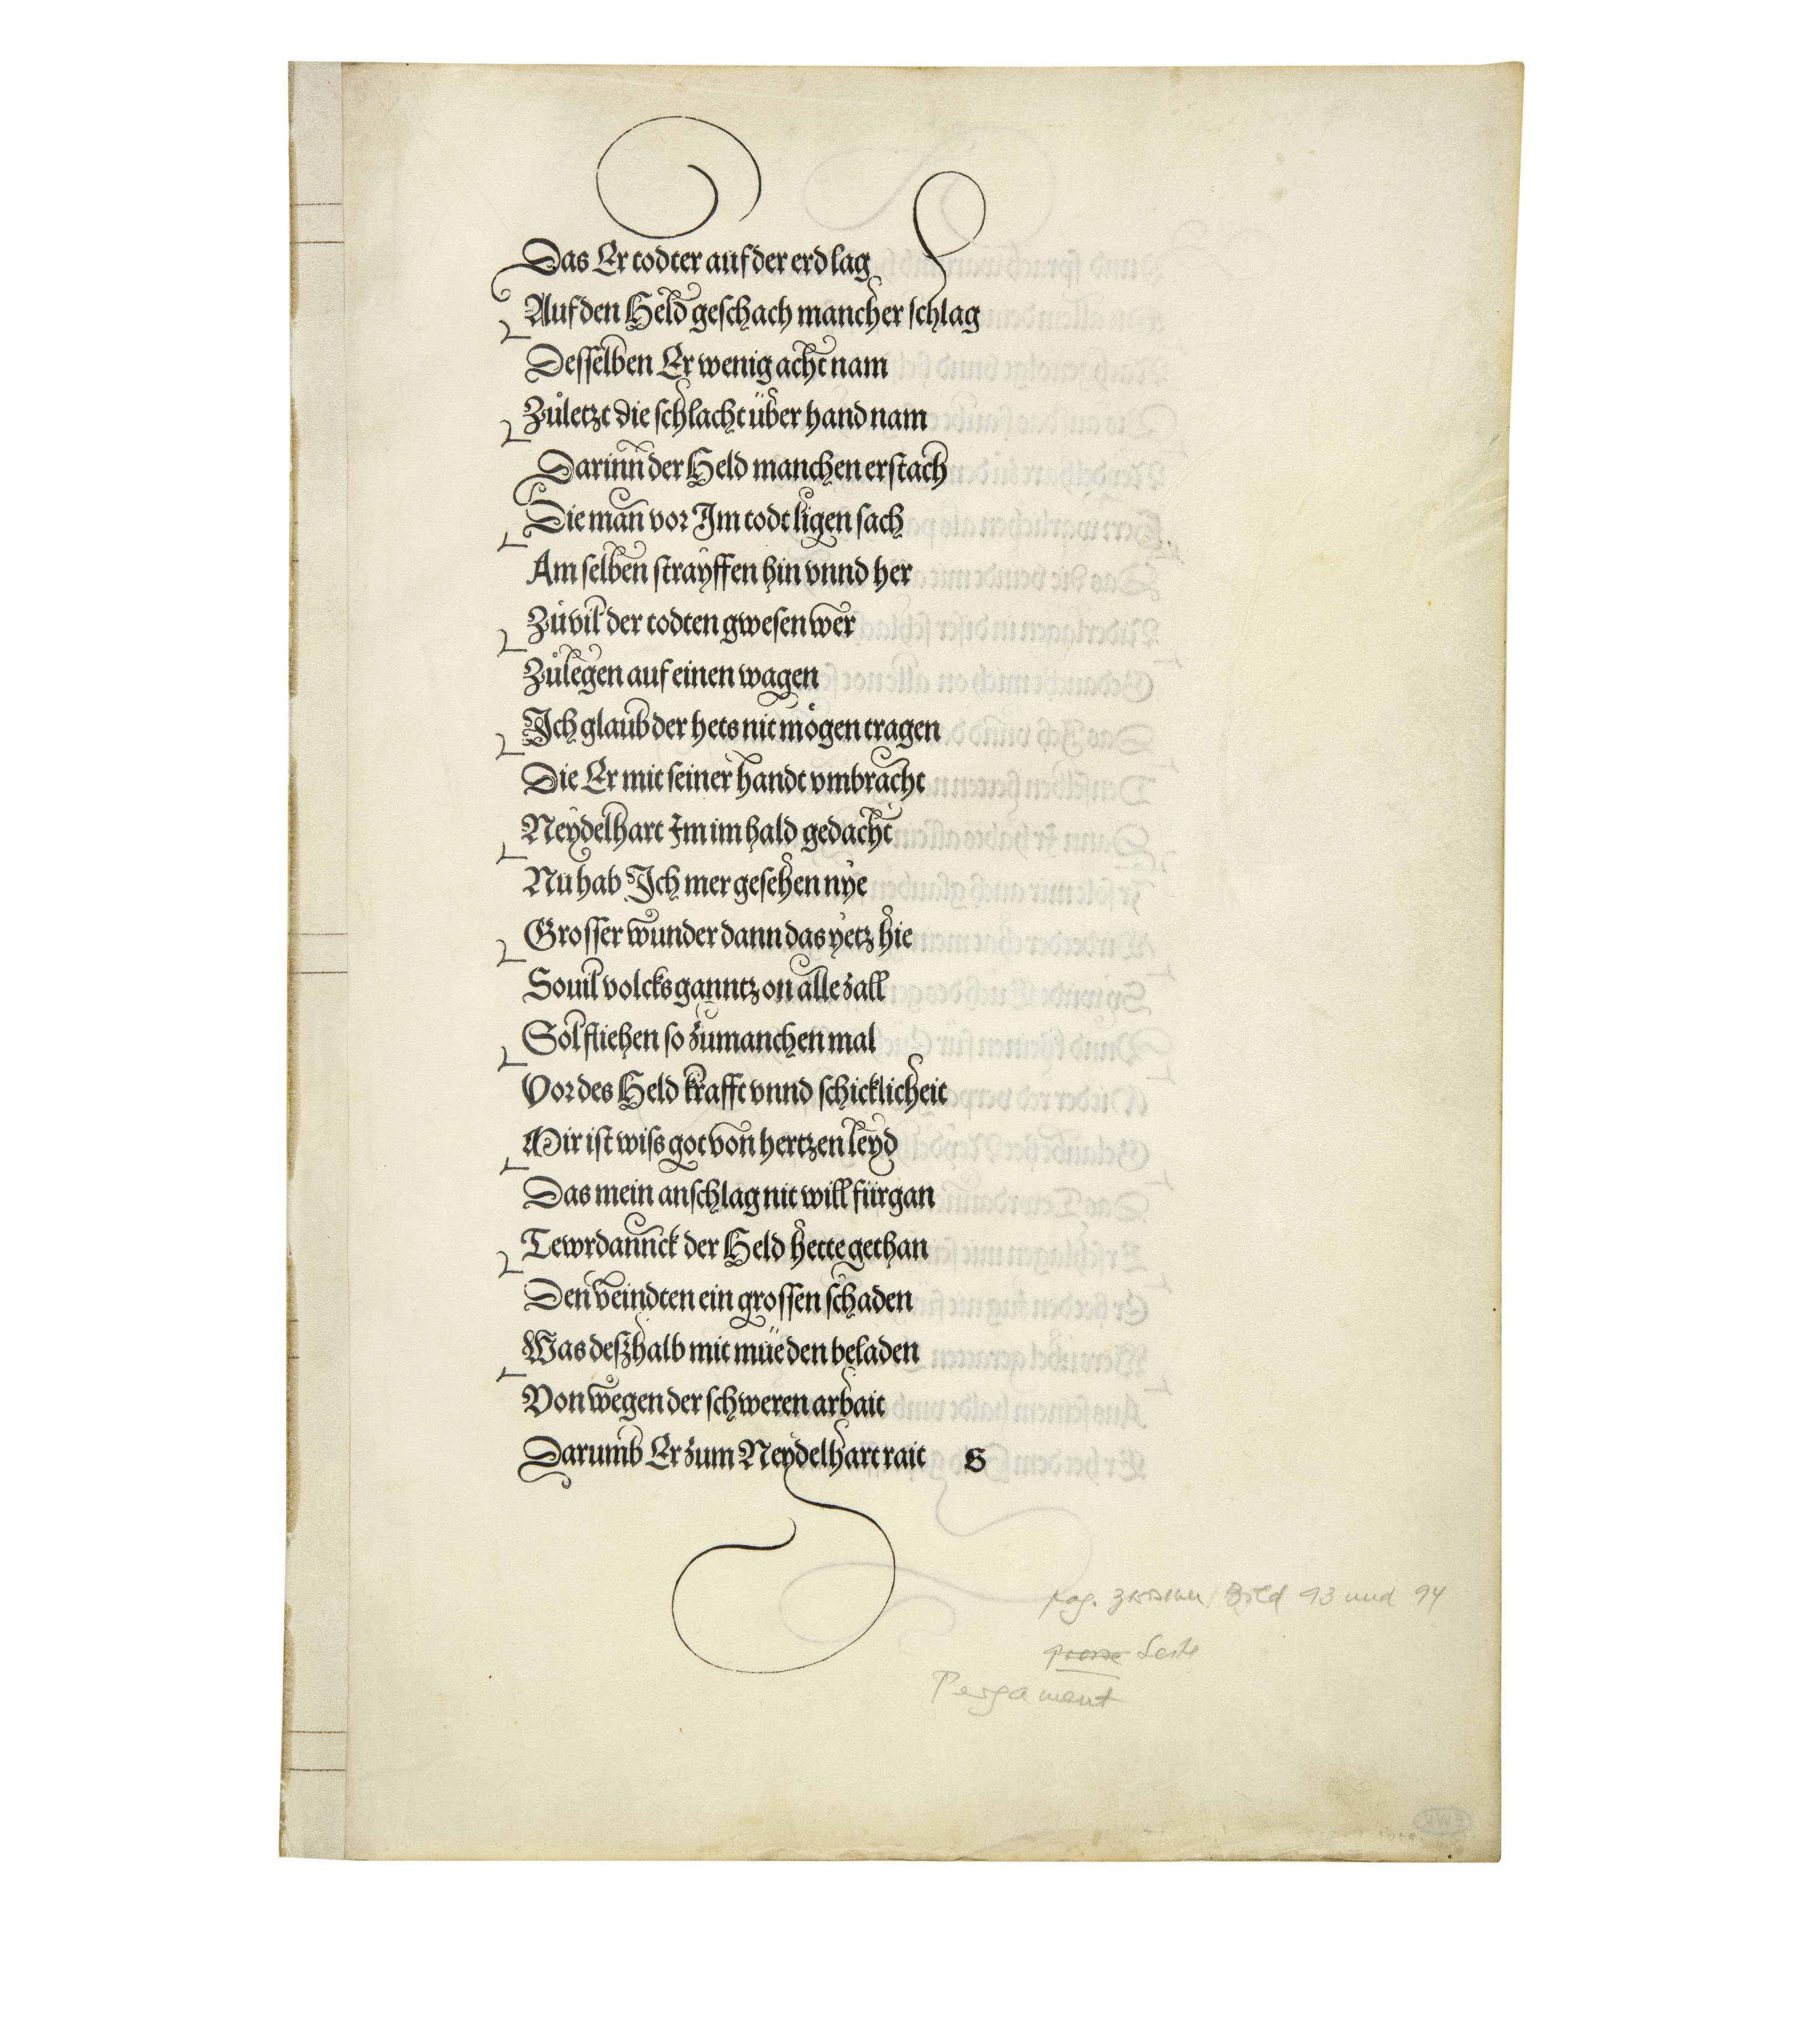 Das Er todter auf der erd lag
Auf den Held geschach mancher schlag
Desselben Er wenig acht nam
Zůletzt die schlacht über hand nam
Darinn der Held manchen erstach
Die man vor Im todt ligen sach
Am selben strayffen hin vnnd her
Zůvil der todten gwesen wer
Zůlegen auf einen wagen
Ich glaub der hets nit mögen tragen
Die Er mit seiner handt vmbracht
Neydelhart Im im hald gedacht
Nu hab Ich mer gesehen nye
Grosser wunder dann das yetz hie
Souil volcks ganntz on alle zall
Sol fliehen so zumanchen mal
Vor des Held krafft vnnd schicklicheit
Mir ist wiss got von hertzen leyd
Das mein anschlag nit will fürgan
Tewrdannck der Held hette gethan
Den veindten ein grossen schaden
Was deszhalb mit müeden beladen
Von wegen der schweren arbait
Darumb Er zum Neydelhart rait S
pag. Bild 93 und 94
Seite
Pergament